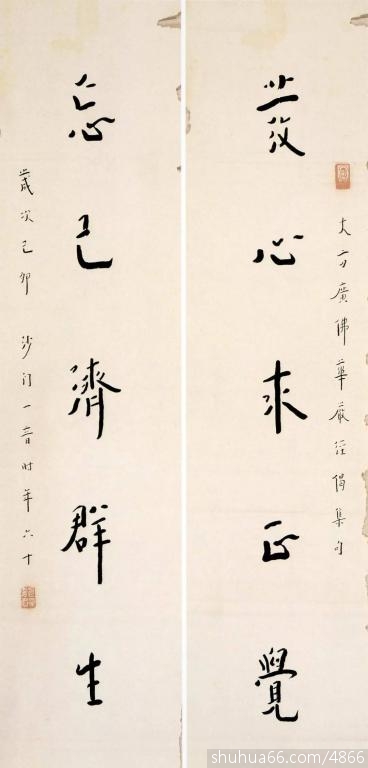 大方廣佛華嚴經偈集句
發心求正覺
忘己濟群生
歲次己卯 沙门一音时年六十
shuhua66.com/4866